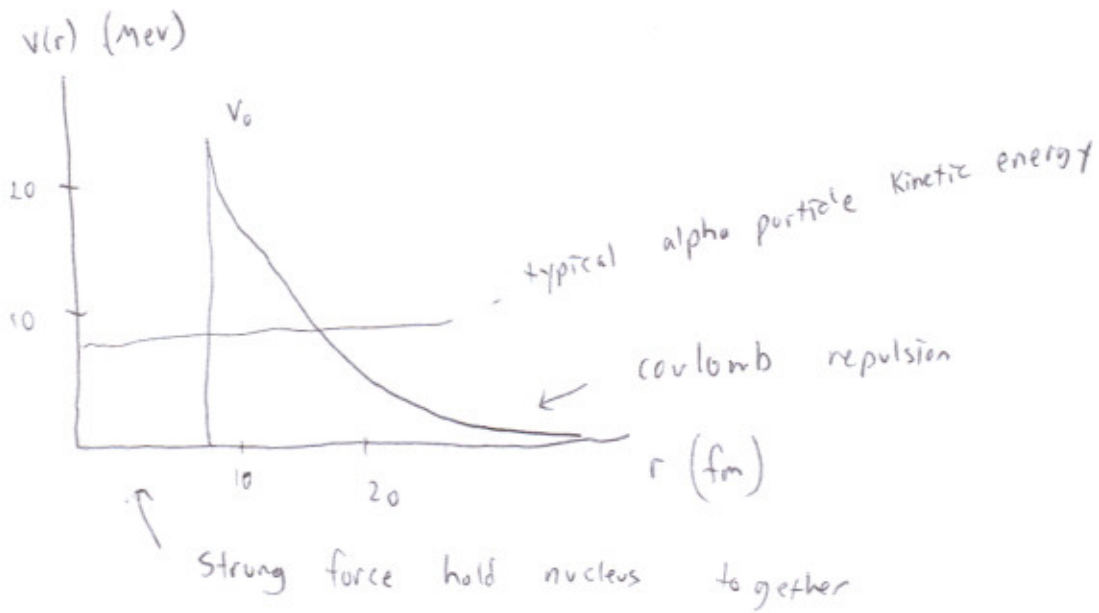 V(r) (Mev)
V₀
20
10
typical alpha particle kinetic energy
coulomb repulsion
10
20
r (fm)
Strong force hold nucleus together